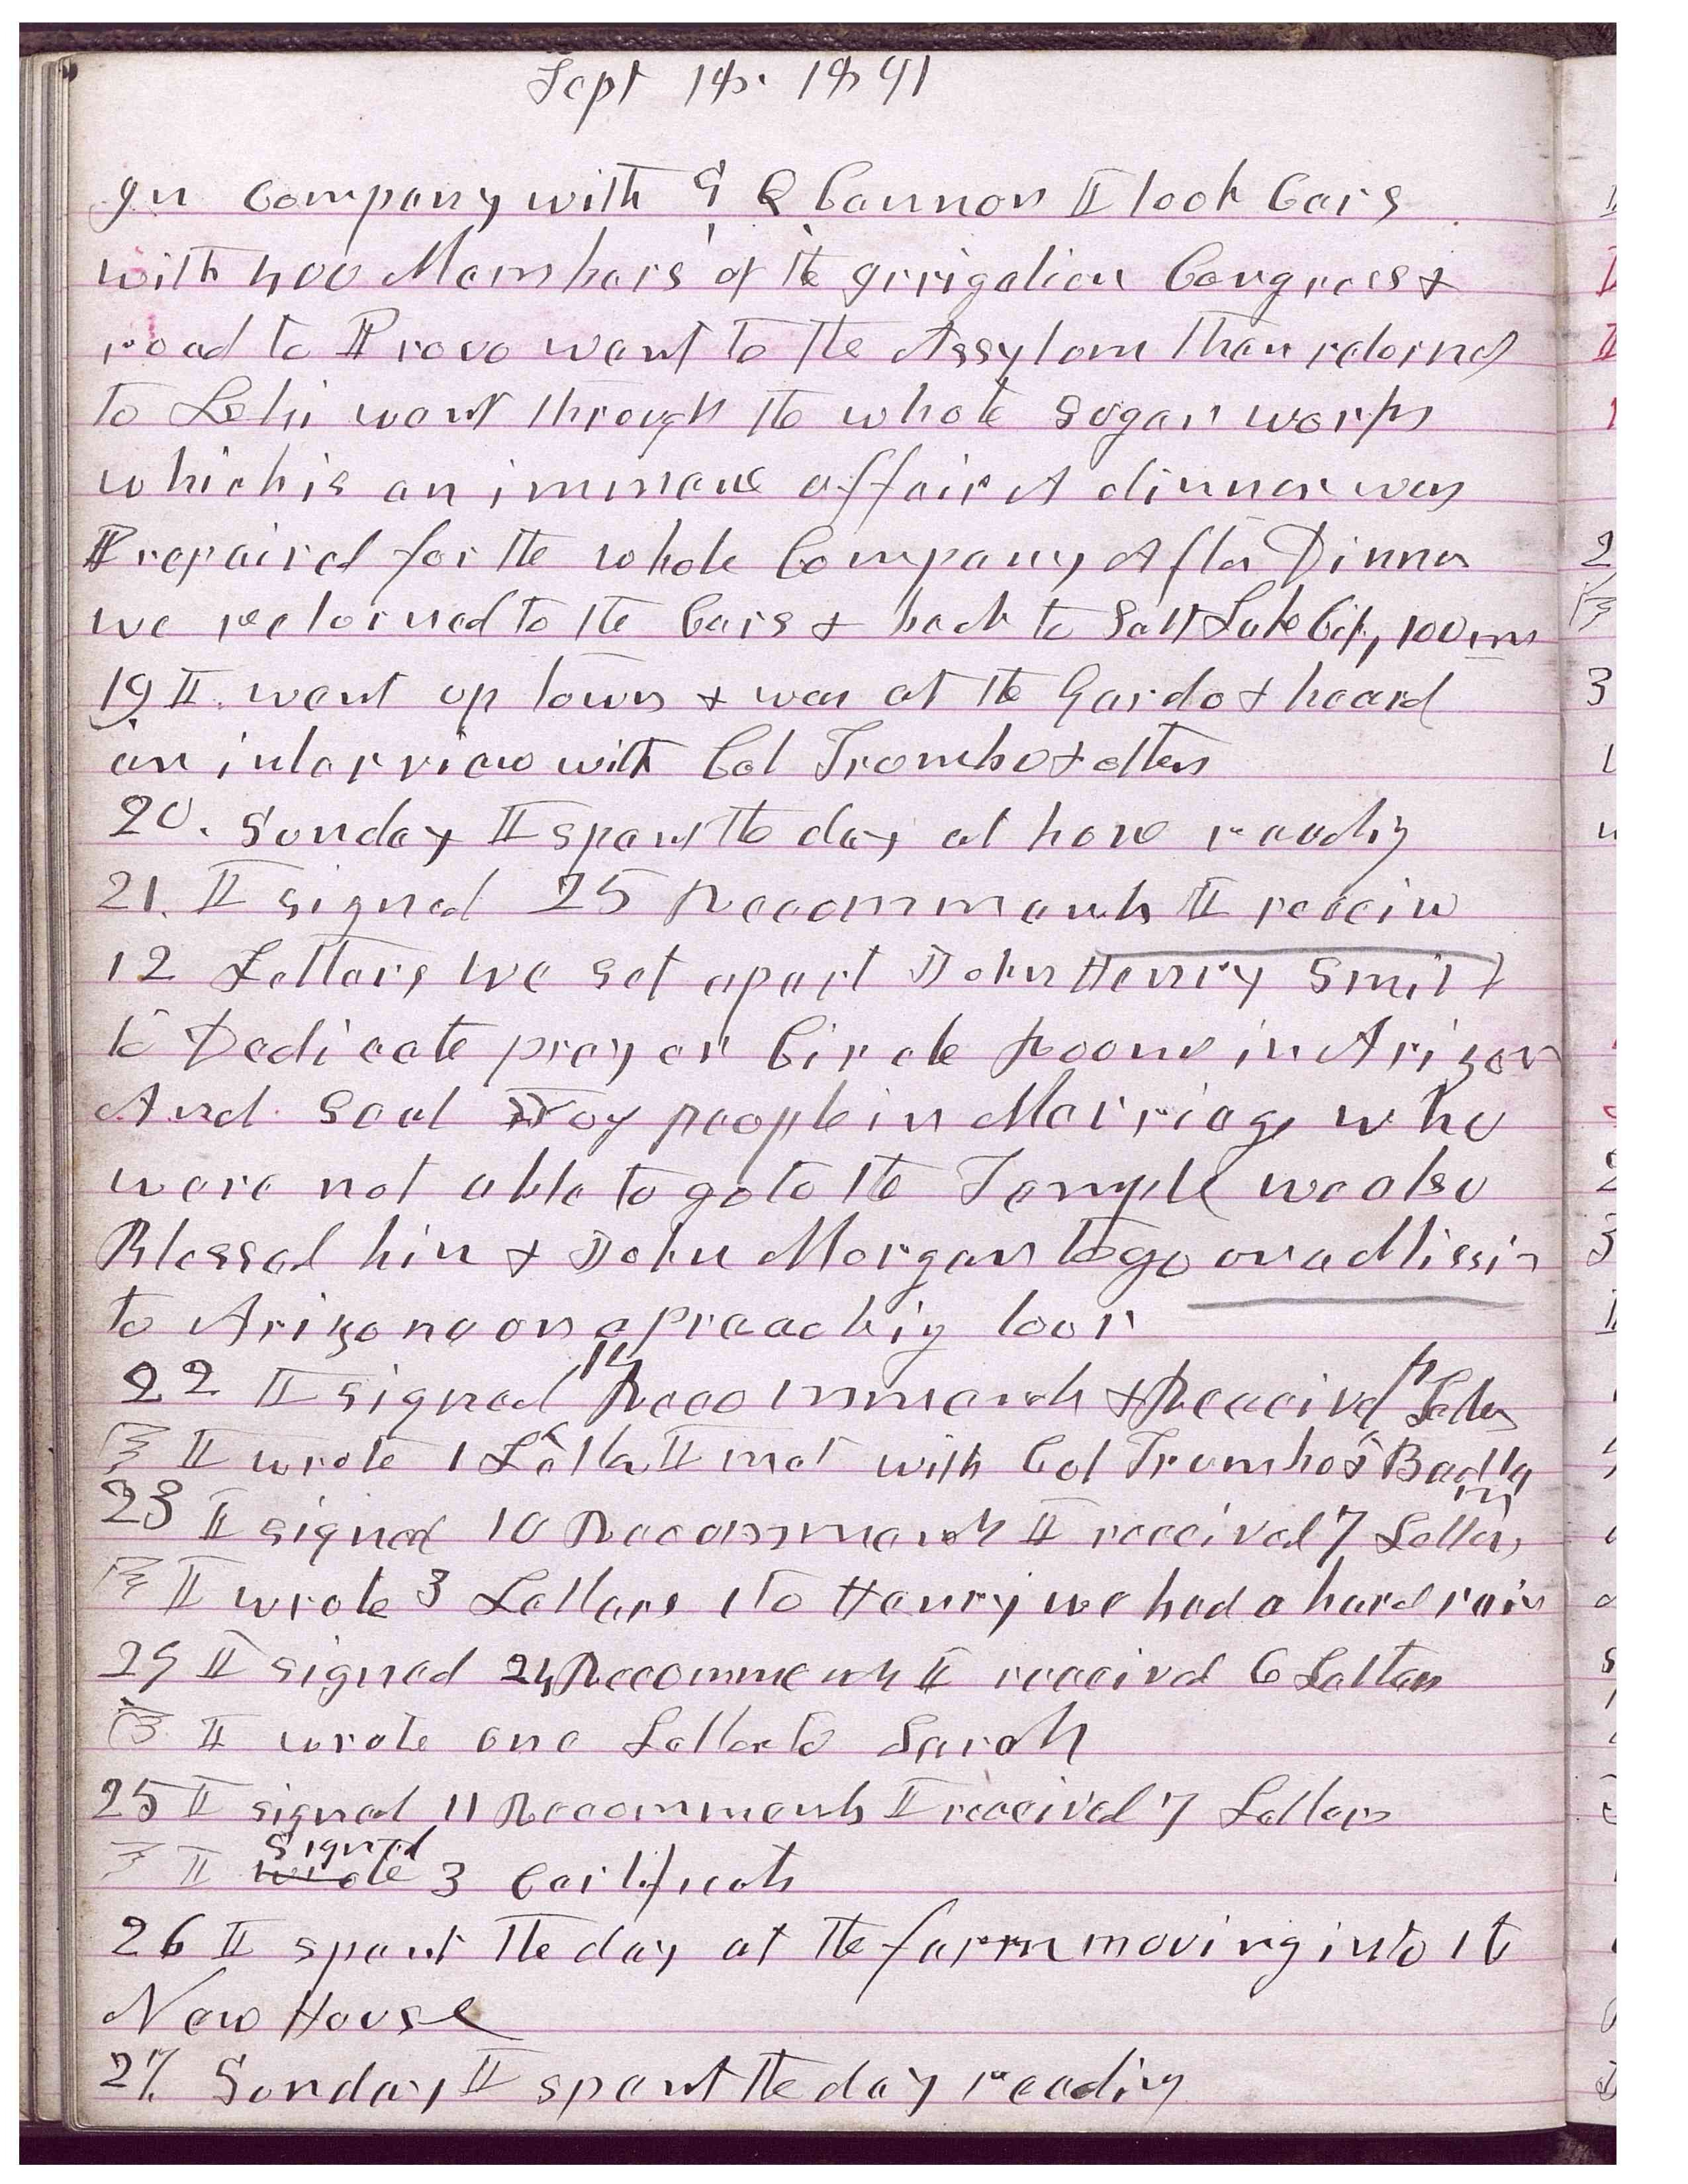 Sept 18. 1891
In Company with G Q Cannon I took Cars
with 400 Members of the Irrigation Congress &
road to Provo went to the Assylom then retornd
to Lehi went through the whole Sugar works
which is an immens affair A dinner was
Prepaired for the whole Company After Dinner
we retorned to the Cars & back to Salt Lake City 100 m
19 I went up town & was at the Gardo & heard
an interview with Col Trombo & others
20. Sunday I spent the day at home reading
21. I signed 25 Recommends I receivd
12 Letters we set apart John Henry Smith
to Dedicate prayer Circle Rooms in Arizona
And Seal Toy people in Marriage who
were not able to go to the Temple we also
Blessed him & John Morgan to go on a Missin
to Arizona on a preaching tour
22 I signed 12 Recommends & Received 12 Letters
I wrote 1 Letter I met with Col Trumbo & Badlam
23 I signed 10 Recommends I received 7 Letters
I wrote 3 Letters 1 to Henry we had a hard rain
24 I signed 24 Recommends I received 6 Letters
I wrote one Letter to Sarah
25 I signed 11 Recommends I received 7 Letters
I wrote Signed 3 Certificats
26 I spent the day at the farm moving into the
New House
27. Sunday I spent the day reading